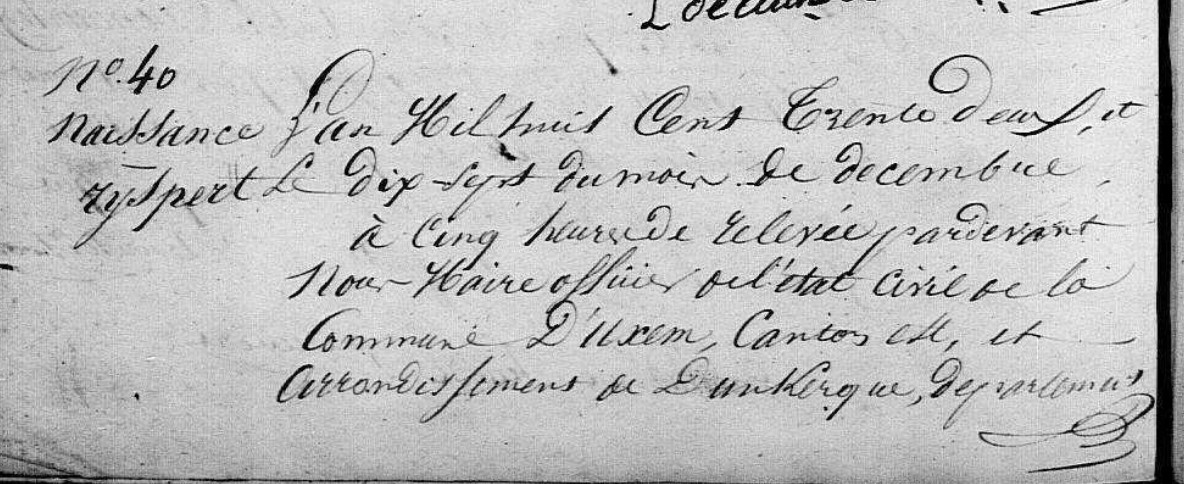 No. 40
Naissance
ryspert
L'an Mil huit Cent Trente deux, et
Le dix-sept du mois de decembre,
à cinq heures de relevée pardevant
Nous Maire officier de l'état civil de la
Commune D'Uxem, Canton est, et
Arrondissement de Dunkerque, departement